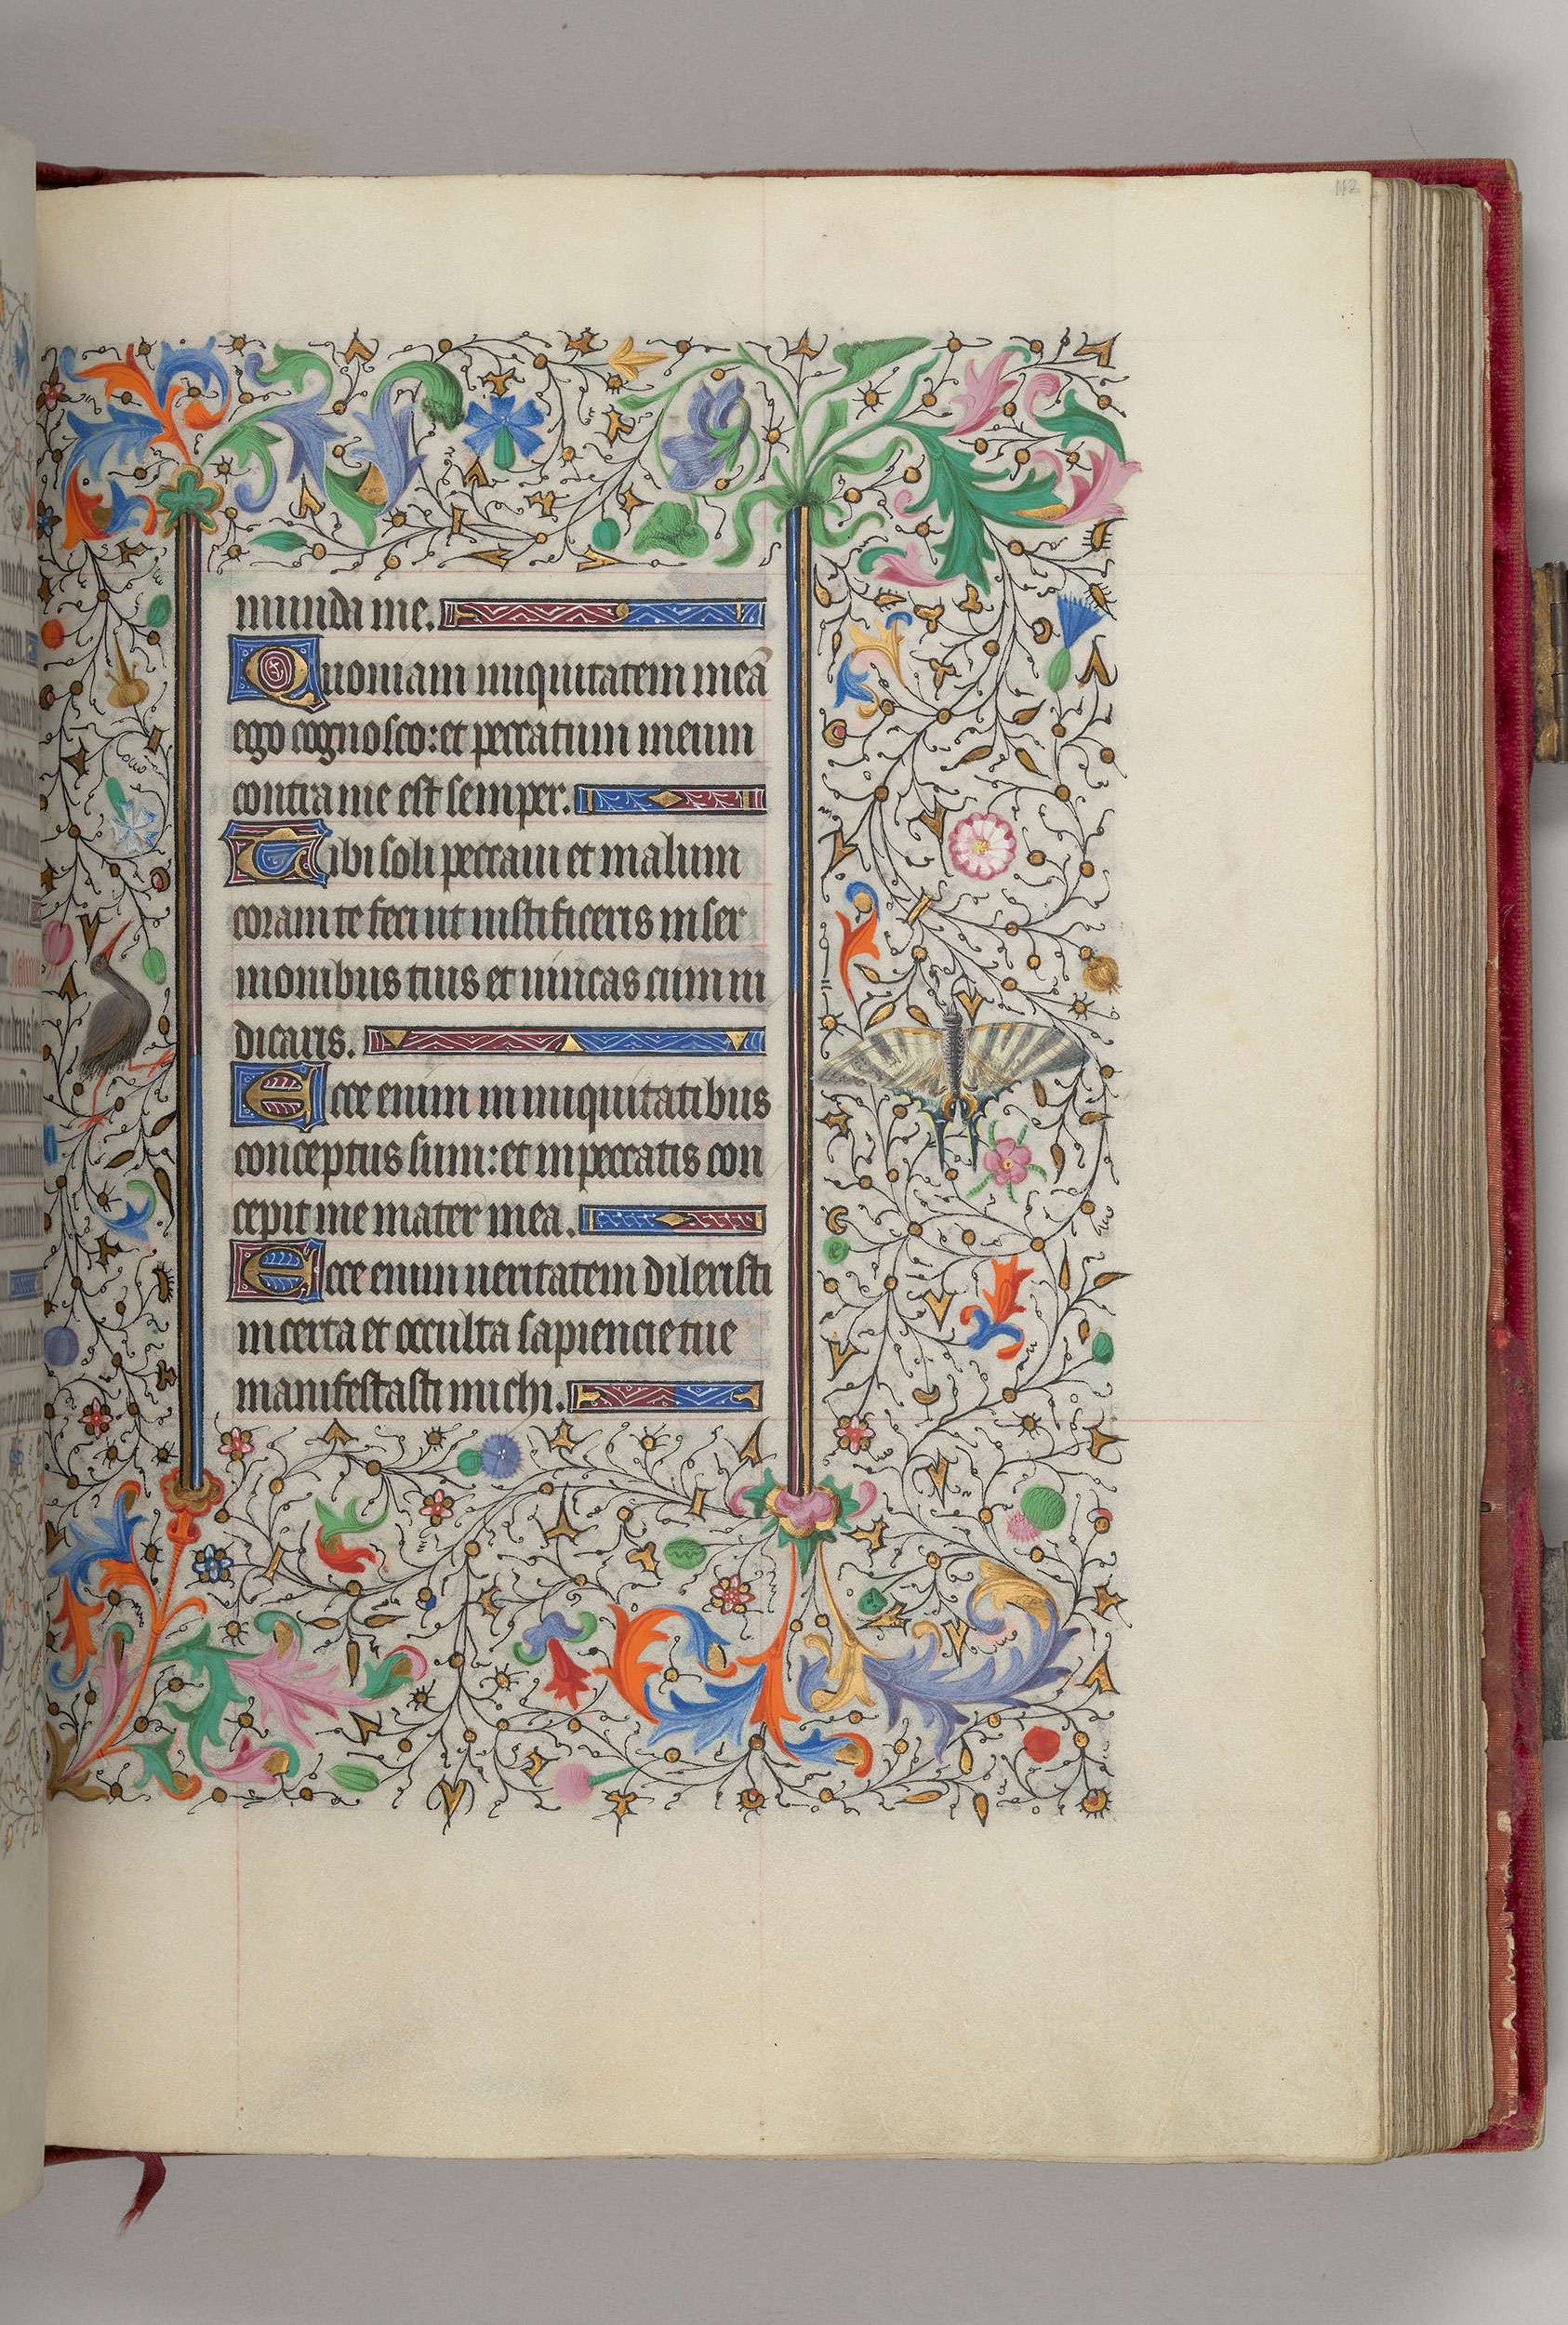 112
munda me.
Quoniam iniquitatem meā
ego cognosco: et peccatum meum
contra me est semper.
Tibi soli peccaui et malum
coram te feci ut iustificeris in ser
monibus tuis et uincas cum iu
dicaris.
Ecce enim in iniquitatibus
conceptus sum: et in peccatis con
cepit me mater mea.
Ecce enim ueritatem dilexisti
incerta et occulta sapiencie tue
manifestasti michi.